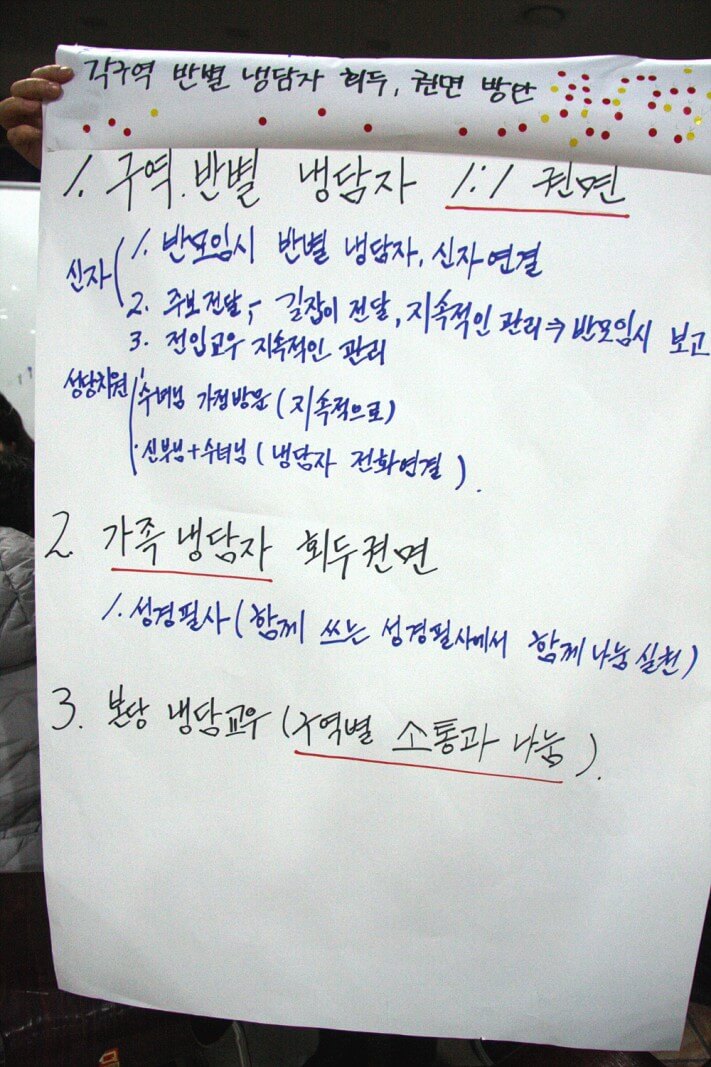 각구역 반별 냉담자 회두, 권면 방안
1. 구역.반별 냉담자 1:1 권면
신자 ( 1. 반모임시 반별 냉담자, 신자연결
2. 주보전달, 길잡이 전달, 지속적인 관리⇒반모임시 보고
3. 전입교우 지속적인 관리
성당차원 수녀님 가정방문 (지속적으로)
· 신부님+수녀님 (냉담자 전화연결).
2. 가족냉담자 회두권면
1. 성경필사 (함께 쓰는 성경필사에서 함께 나눔 실천)
3. 본당 냉담교우 (구역별 소통과 나눔).